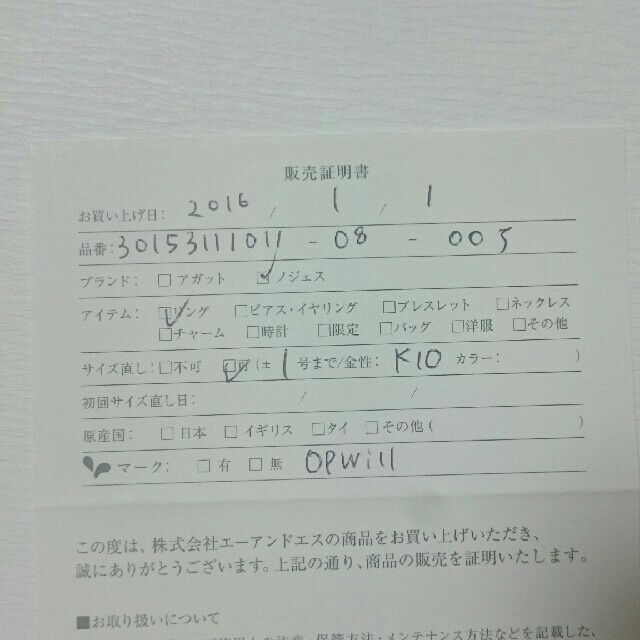 販売証明書
お買い上げ日: 2016 / 1 / 1
品番: 30153111011 - 08 - 005
ブランド: □ アガット ☑ ノジェス
アイテム: ☑リング □ピアス・イヤリング □ブレスレット □ネックレス
□チャーム □時計 □限定 □バッグ □洋服 □その他
サイズ直し: □不可 ☑可 (± 1 号まで/金性: K10 カラー: )
初回サイズ直し日: / /
原産国: □ 日本 □ イギリス □タイ □その他 ( )
マーク: □ 有 □ 無 OPWill
この度は、株式会社エーアンドエスの商品をお買い上げいただき、
誠にありがとうございます。上記の通り、商品の販売を証明いたします。
■お取り扱いについて
保管方法・メンテナンス方法などを記載した、